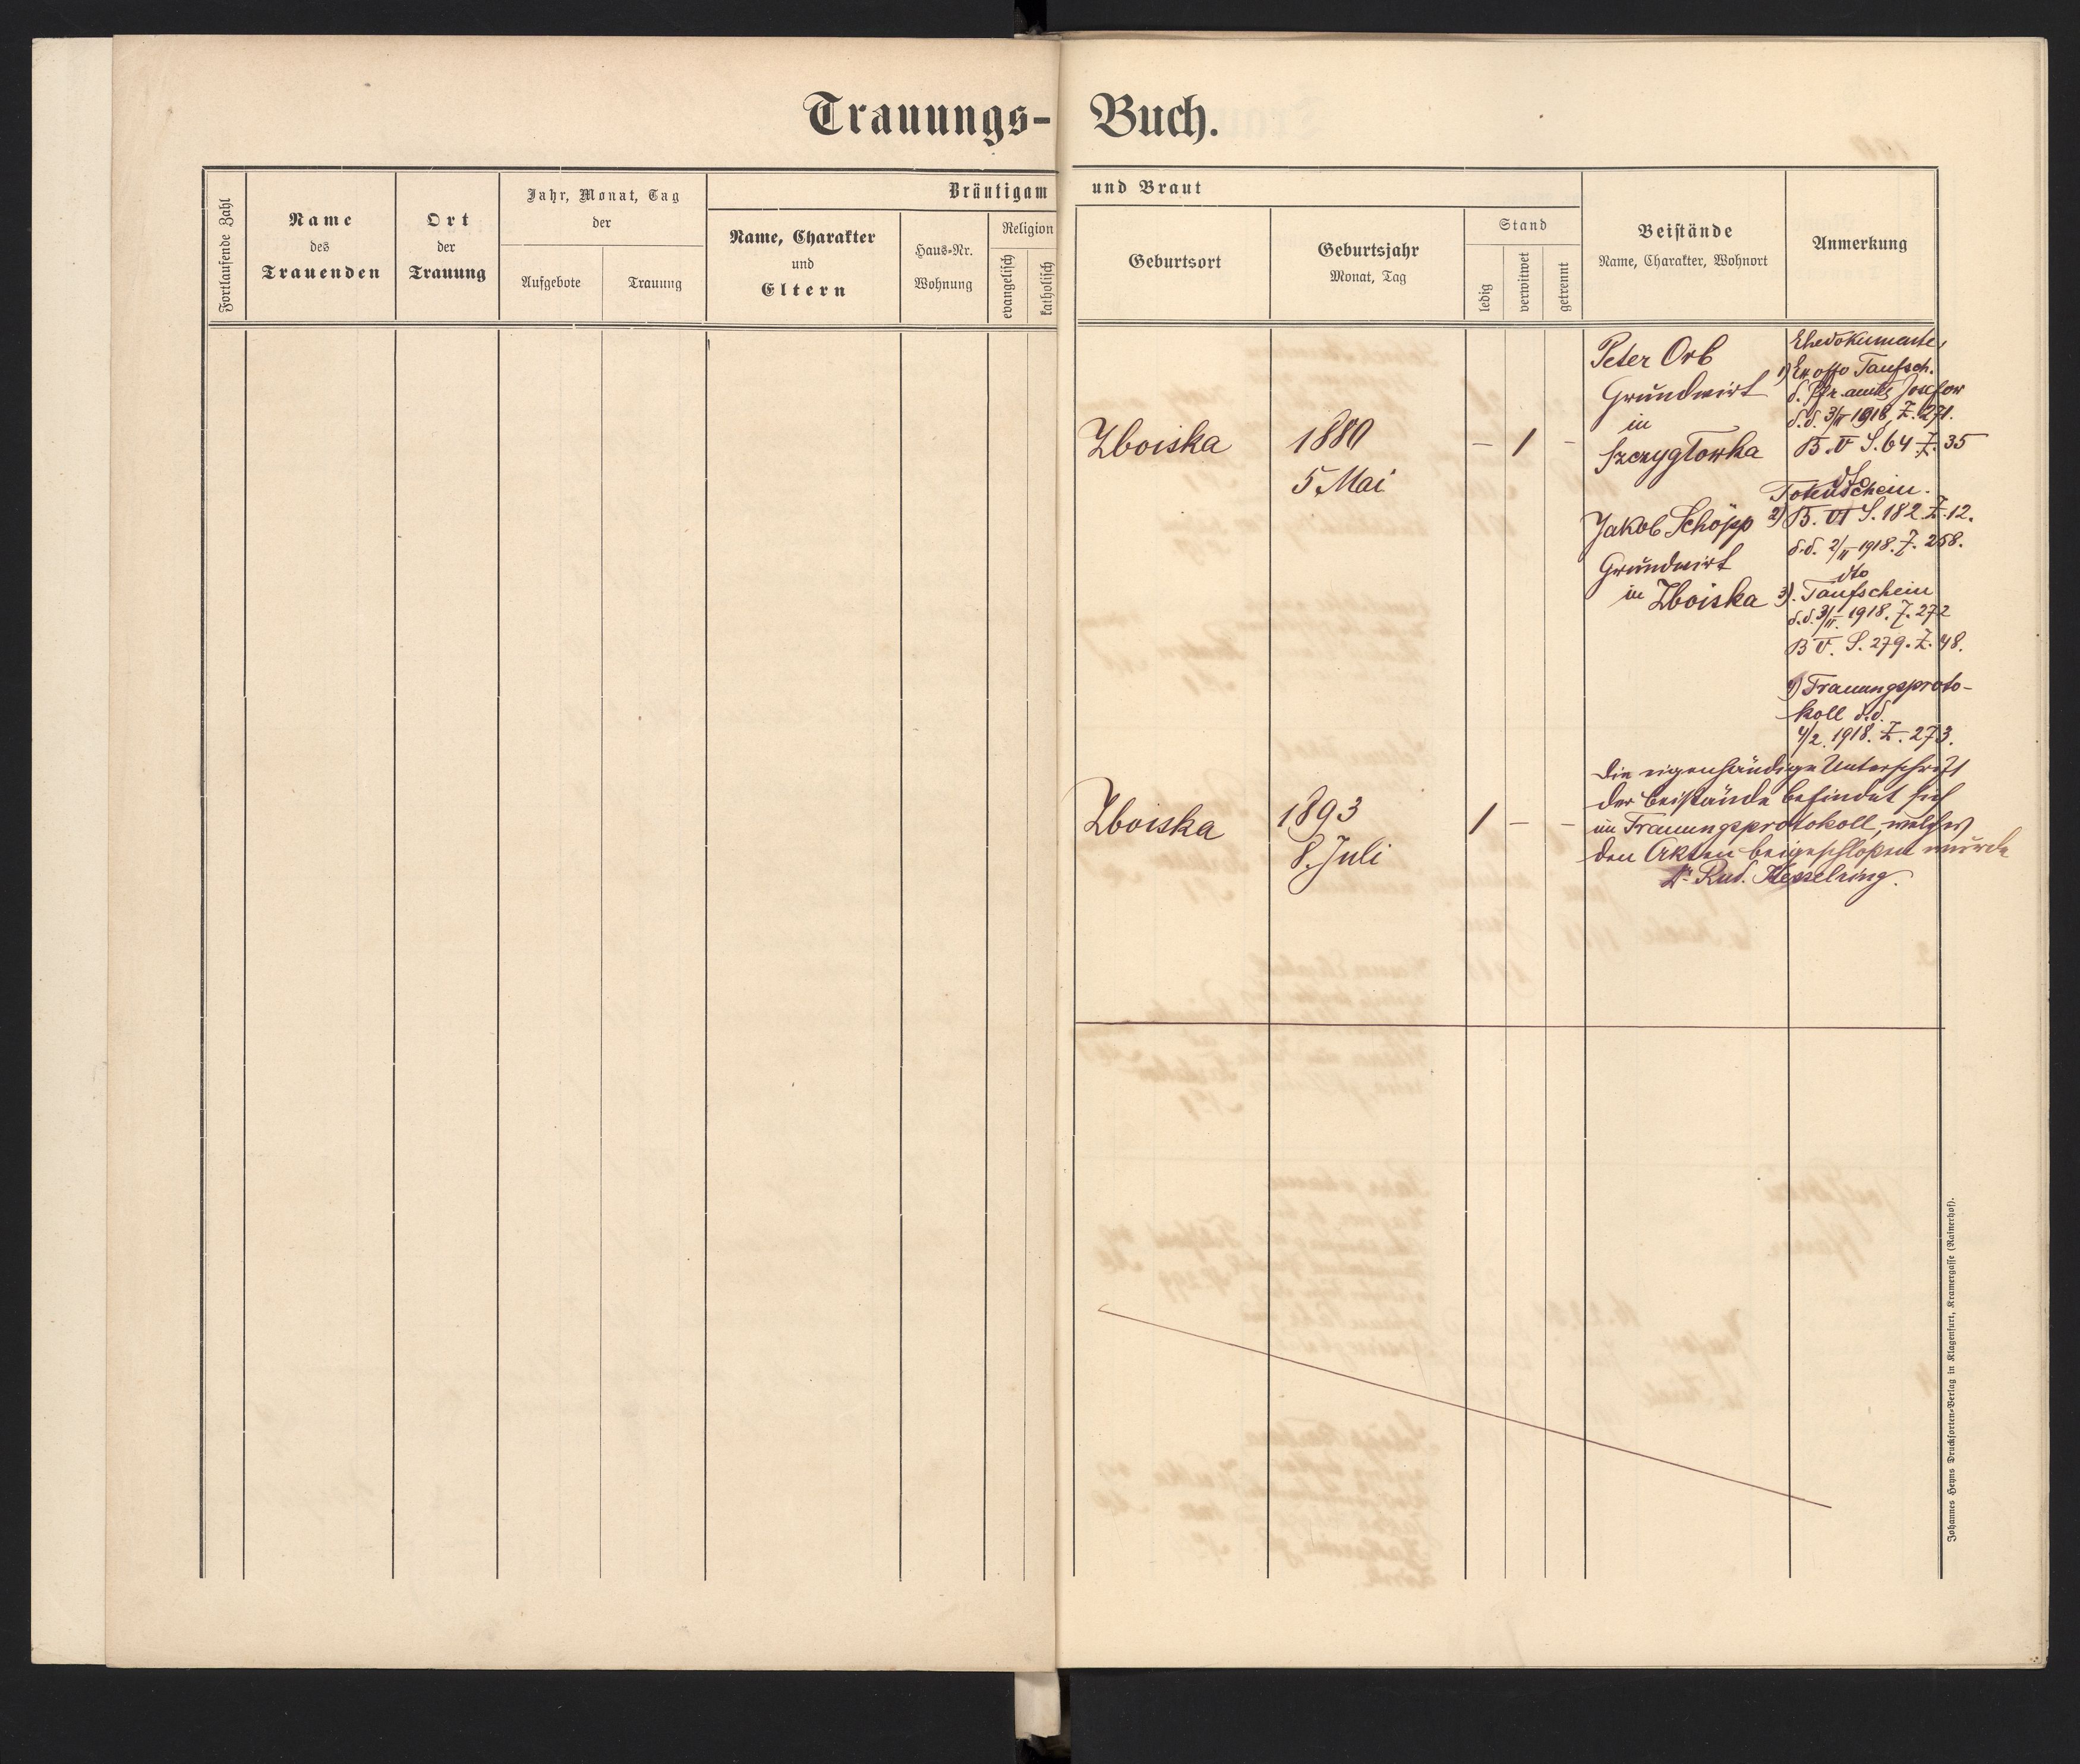 Trauungs-Buch.
Fortlaufende Zahl
Name
des
Trauenden
Ort
der
Trauung
Jahr, Monat, Tag
der
Aufgebote
Trauung
Bräutigam
Name, Charakter
und
Eltern
Haus-Nr.
Wohnung
Religion
evangelisch
katholisch
und Braut
Geburtsort
Geburtsjahr
Monat, Tag
Stand
ledig
verwitwet
getrennt
Beistände
Name, Charakter, Wohnort
Anmerkung
Zboiska
1880
5 Mai
– 1 –
Peter Orb
Grundwirt
in
Szczyglowka
Jakob Schöpp
Grundwirt
in Zboiska
Ehedokumente,
1) Ex offo Taufsch.
d. Pfr. amts Josefow
d.d. 3/II 1918, Z. 271.
B. V S. 64 Z. 35
dto
Totenschein.
2) B. VI S. 182. Z. 12.
d.d. 2/II 1918. Z. 258.
dto
3). Taufschein
d.d. 3/II. 1918. Z. 272
B V. S. 279. Z. 48.
4) Trauungsproto-
koll d.d.
4/2. 1918. Z. 273.
Zboiska
1893
8. Juli
1 – –
Die eigenhändige Unterschrift
der Beistände befindet sich
im Trauungsprotokoll, welches
den Akten beigeschloßen wurde
Dr. Rud. Kesselring.
Johannes Heyns Drucksorten-Verlag in Klagenfurt, Kramergasse (Rainerhof).